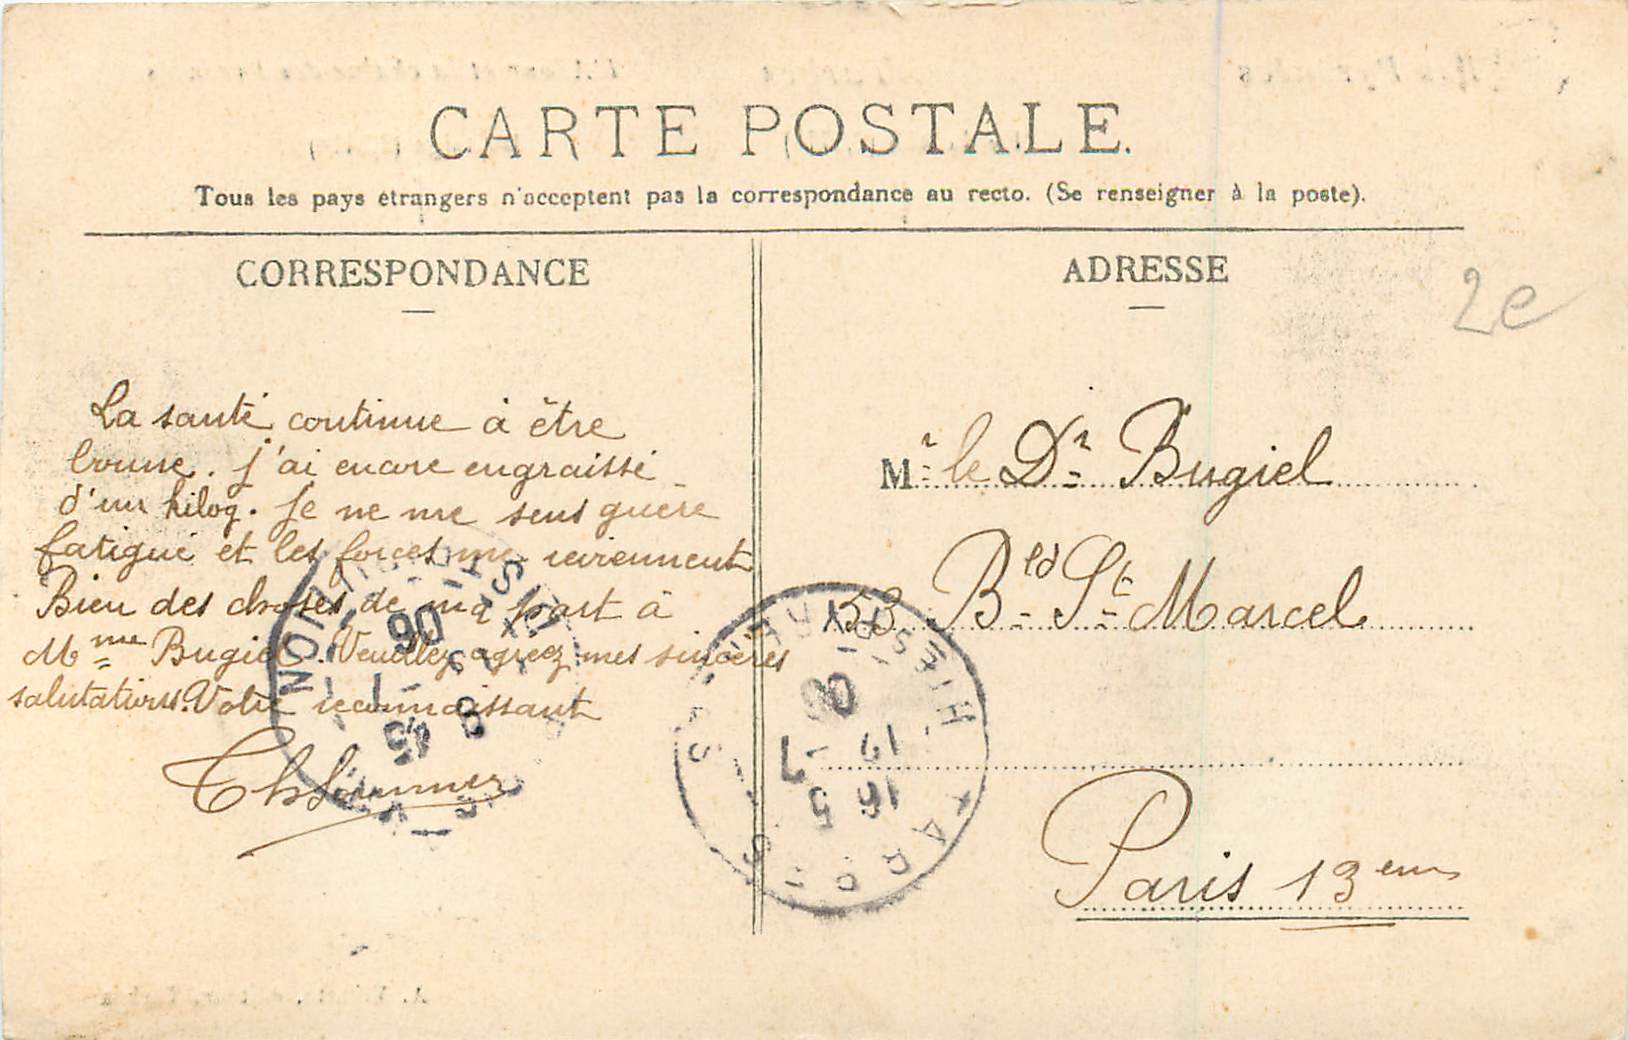 CARTE POSTALE.
Tous les pays étrangers n'acceptent pas la correspondance au recto. (Se renseigner à la poste).
CORRESPONDANCE
ADRESSE
2e
La santé continue à être
bonne. J'ai encore engraissé
d'un kilog. Je ne me sens guère
fatigué et les forces me reviennent
Bien des choses de ma part à
Mme Bugiel. Veuillez agréez mes sincères
salutations. Votre reconnaissant
Mr le Dr Bugiel
53 Bld St Marcel
Paris 13em
HTES PYRÉNÉES
TARBES
16 5
19 - 7
06